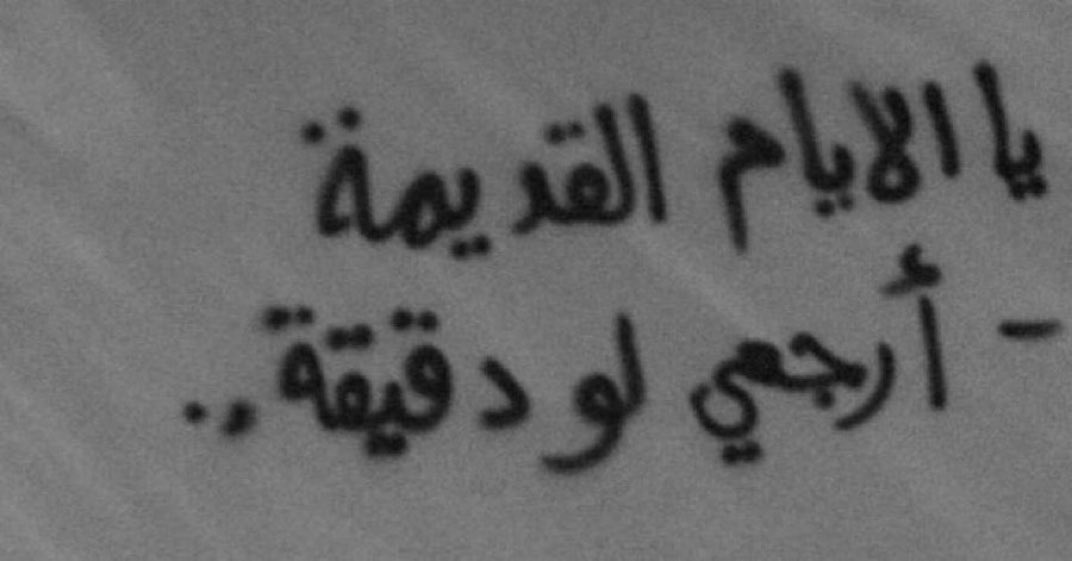 يا الايام القديمة
- أرجعي لو دقيقة ..